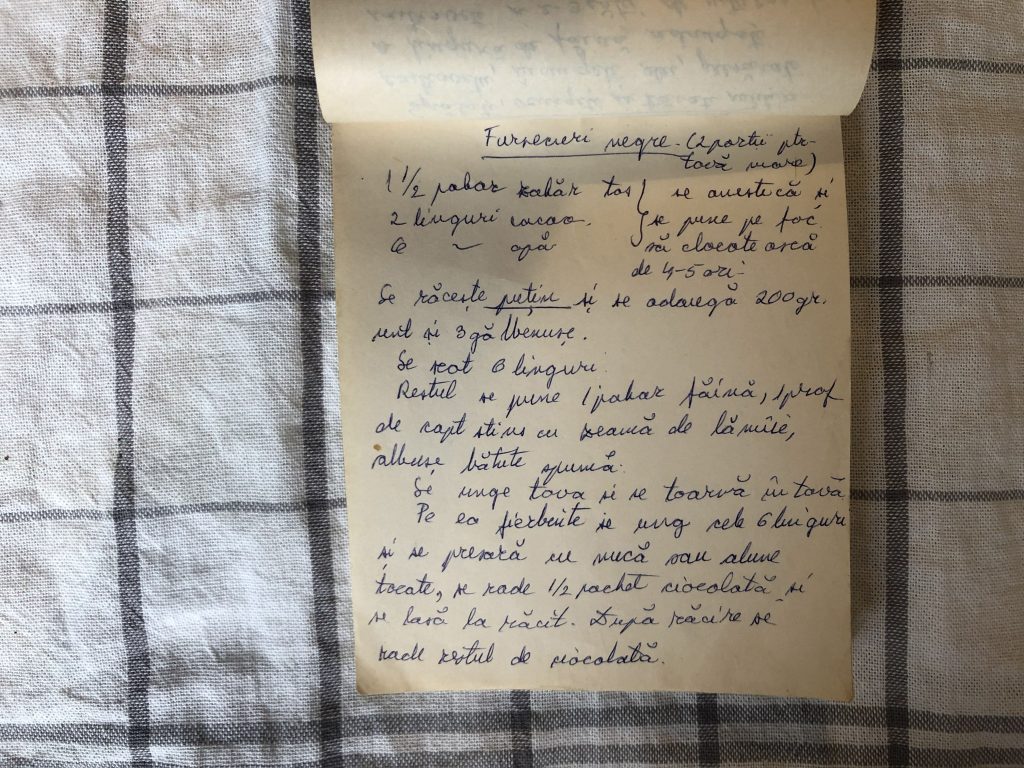 Fursecuri negre. (2 portii ptr.
tavă mare)
1 1/2 pahar zahăr tos } se amestică si
2 linguri cacao. } se pune pe foc
6 ~ apă să clocotească
de 4-5 ori-
Se răcește puțin și se adaugă 200gr.
unt și 3 gălbenușe.
Se scot 6 linguri.
Restul se pune 1 pahar făină, 1 praf
de copt stins cu zeamă de lămîie,
albușe bătute spumă.
Se unge tava si se toarnă în tavă
Pe ea fierbinte se ung cele 6 linguri
și se presară cu nucă sau alune
tocate, se rade 1/2 pachet ciocolată și
se lasă la răcit. După răcire se
rade restul de ciocolată.